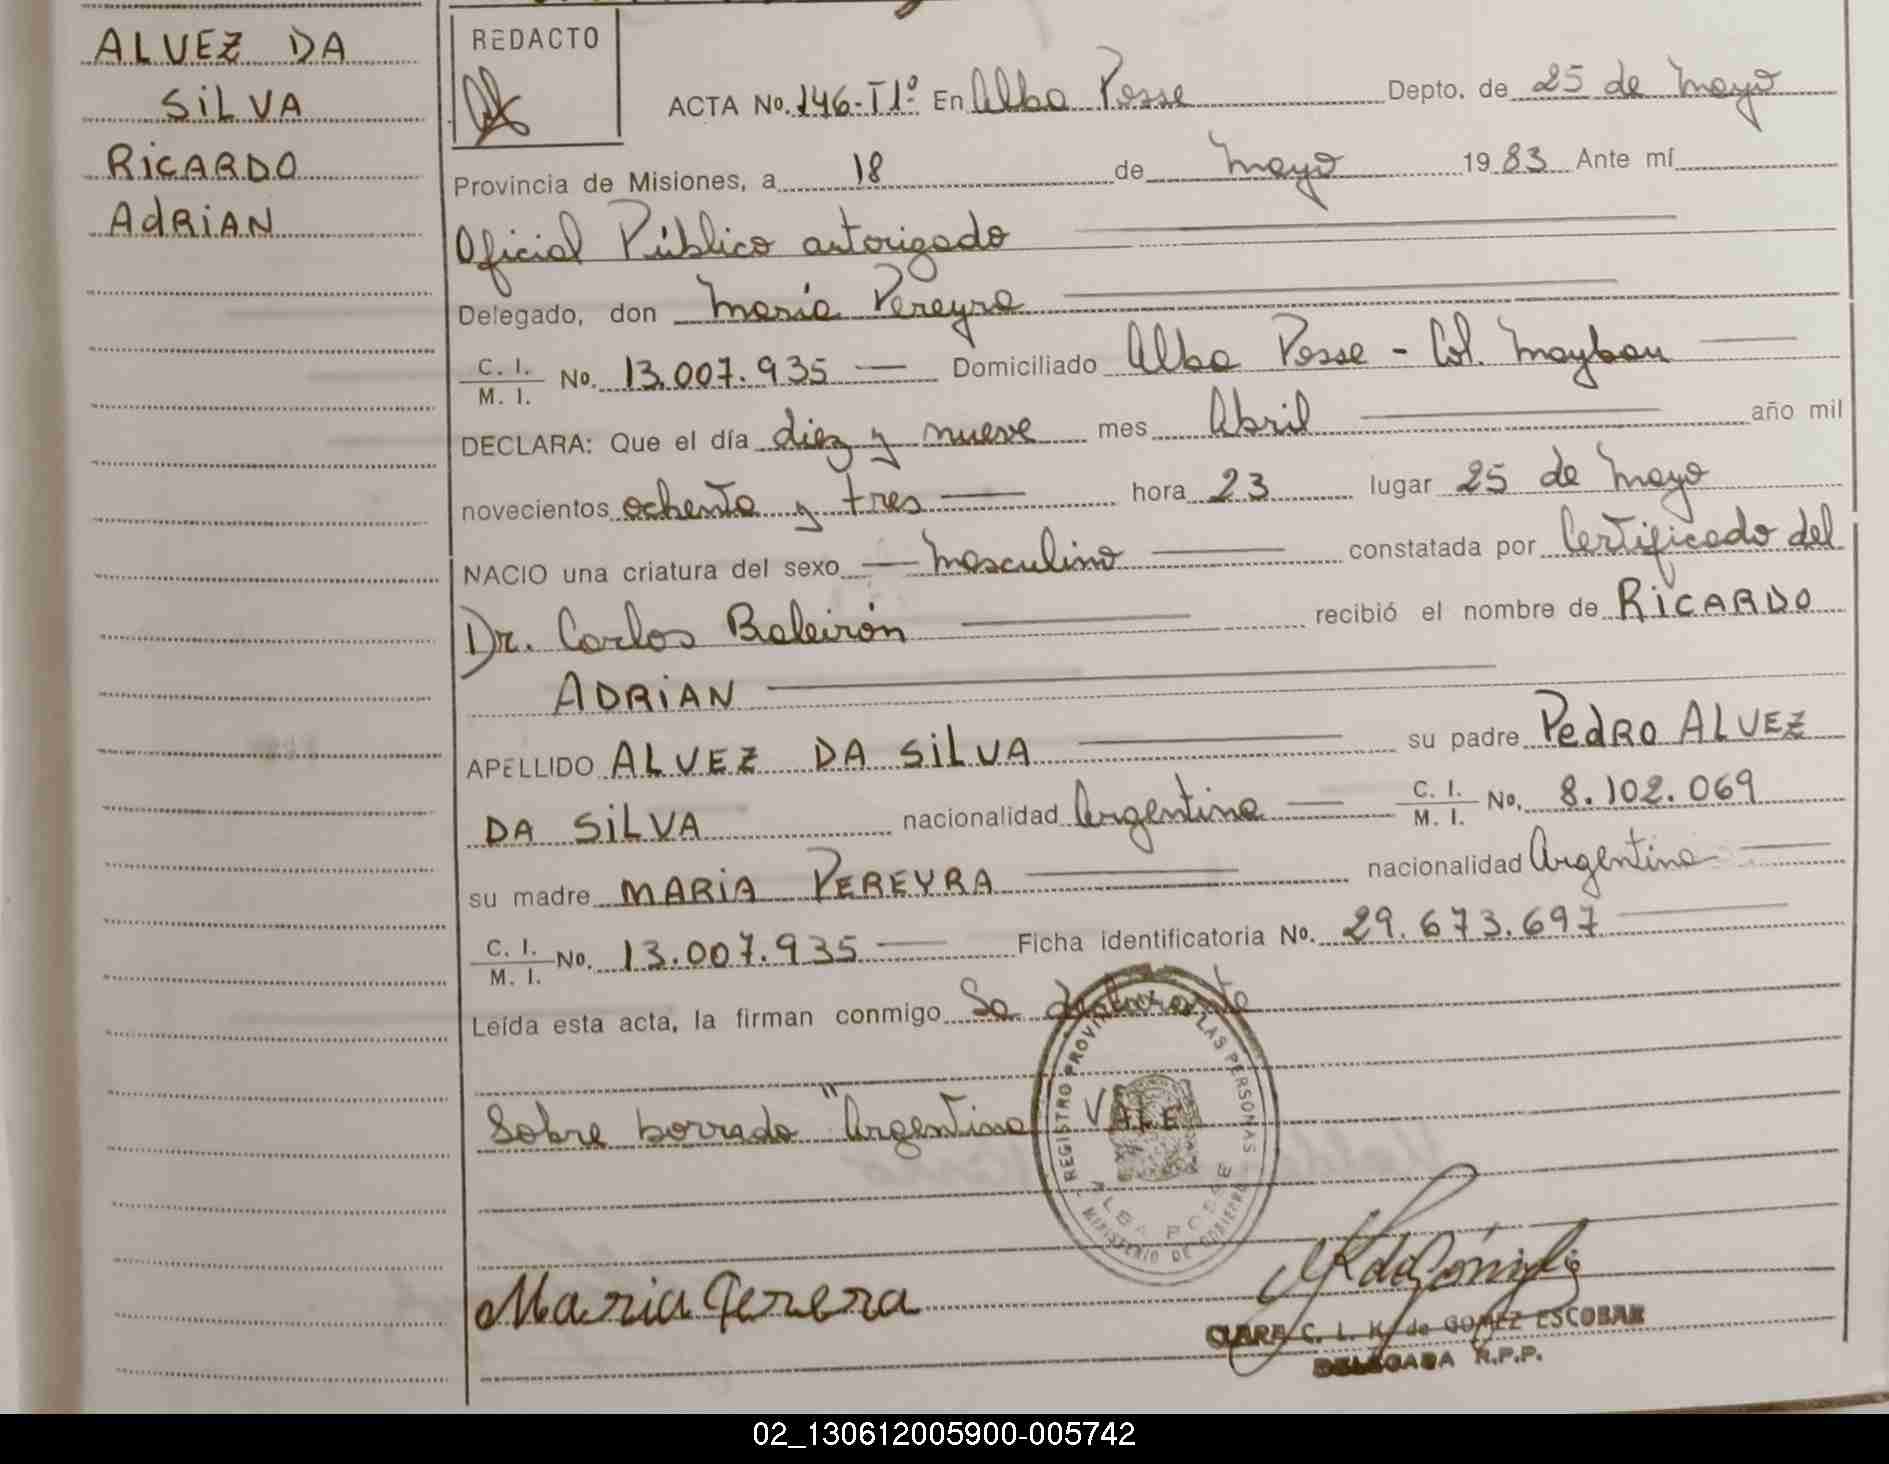 ALVEZ DA
SiLVA
RiCARDO
AdRiAN
REDACTO
ACTA No. 146-T1º En Alba Posse Depto. de 25 de Mayo
Provincia de Misiones, a 18 de Mayo 1983 Ante mí
Oficial Público autorizado
Delegado, don María Pereyra
C. I.
M. I. No. 13.007.935 — Domiciliado Alba Posse - Col. Maybau
DECLARA: Que el día diez y nueve mes Abril año mil
novecientos ochenta y tres hora 23 lugar 25 de Mayo
NACIO una criatura del sexo — Masculino constatada por Certificado del
Dr. Carlos Baleirón recibió el nombre de RiCARDO
ADRiAN
APELLIDO ALVEZ DA SiLVA su padre PedRO ALVEZ
DA SiLVA nacionalidad Argentina — C. I.
M. I. No. 8.102.069
su madre MARiA PEREYRA nacionalidad Argentina
C. I.
M. I. No. 13.007.935 — Ficha identificatoria No. 29.673.697
Leída esta acta, la firman conmigo La declarante
Sobre borrado "Argentina VALE
REGISTRO PROVINCIAL DE LAS PERSONAS
ALBA POSSE
MINISTERIO DE GOBIERNO
Maria Perera
CLARA C. L. K. de GOMEZ ESCOBAR
DELEGADA R.P.P.
02_130612005900-005742